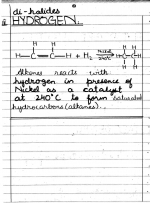 di-halides
HYDROGEN.
H H
H-C=C-H + H₂ Nickel 240°C H-C-C-H
Alkenes reacts with
hydrogen in presence of
Nickel as a catalyst
at 240°C to form saturated
hydrocarbons (alkanes).